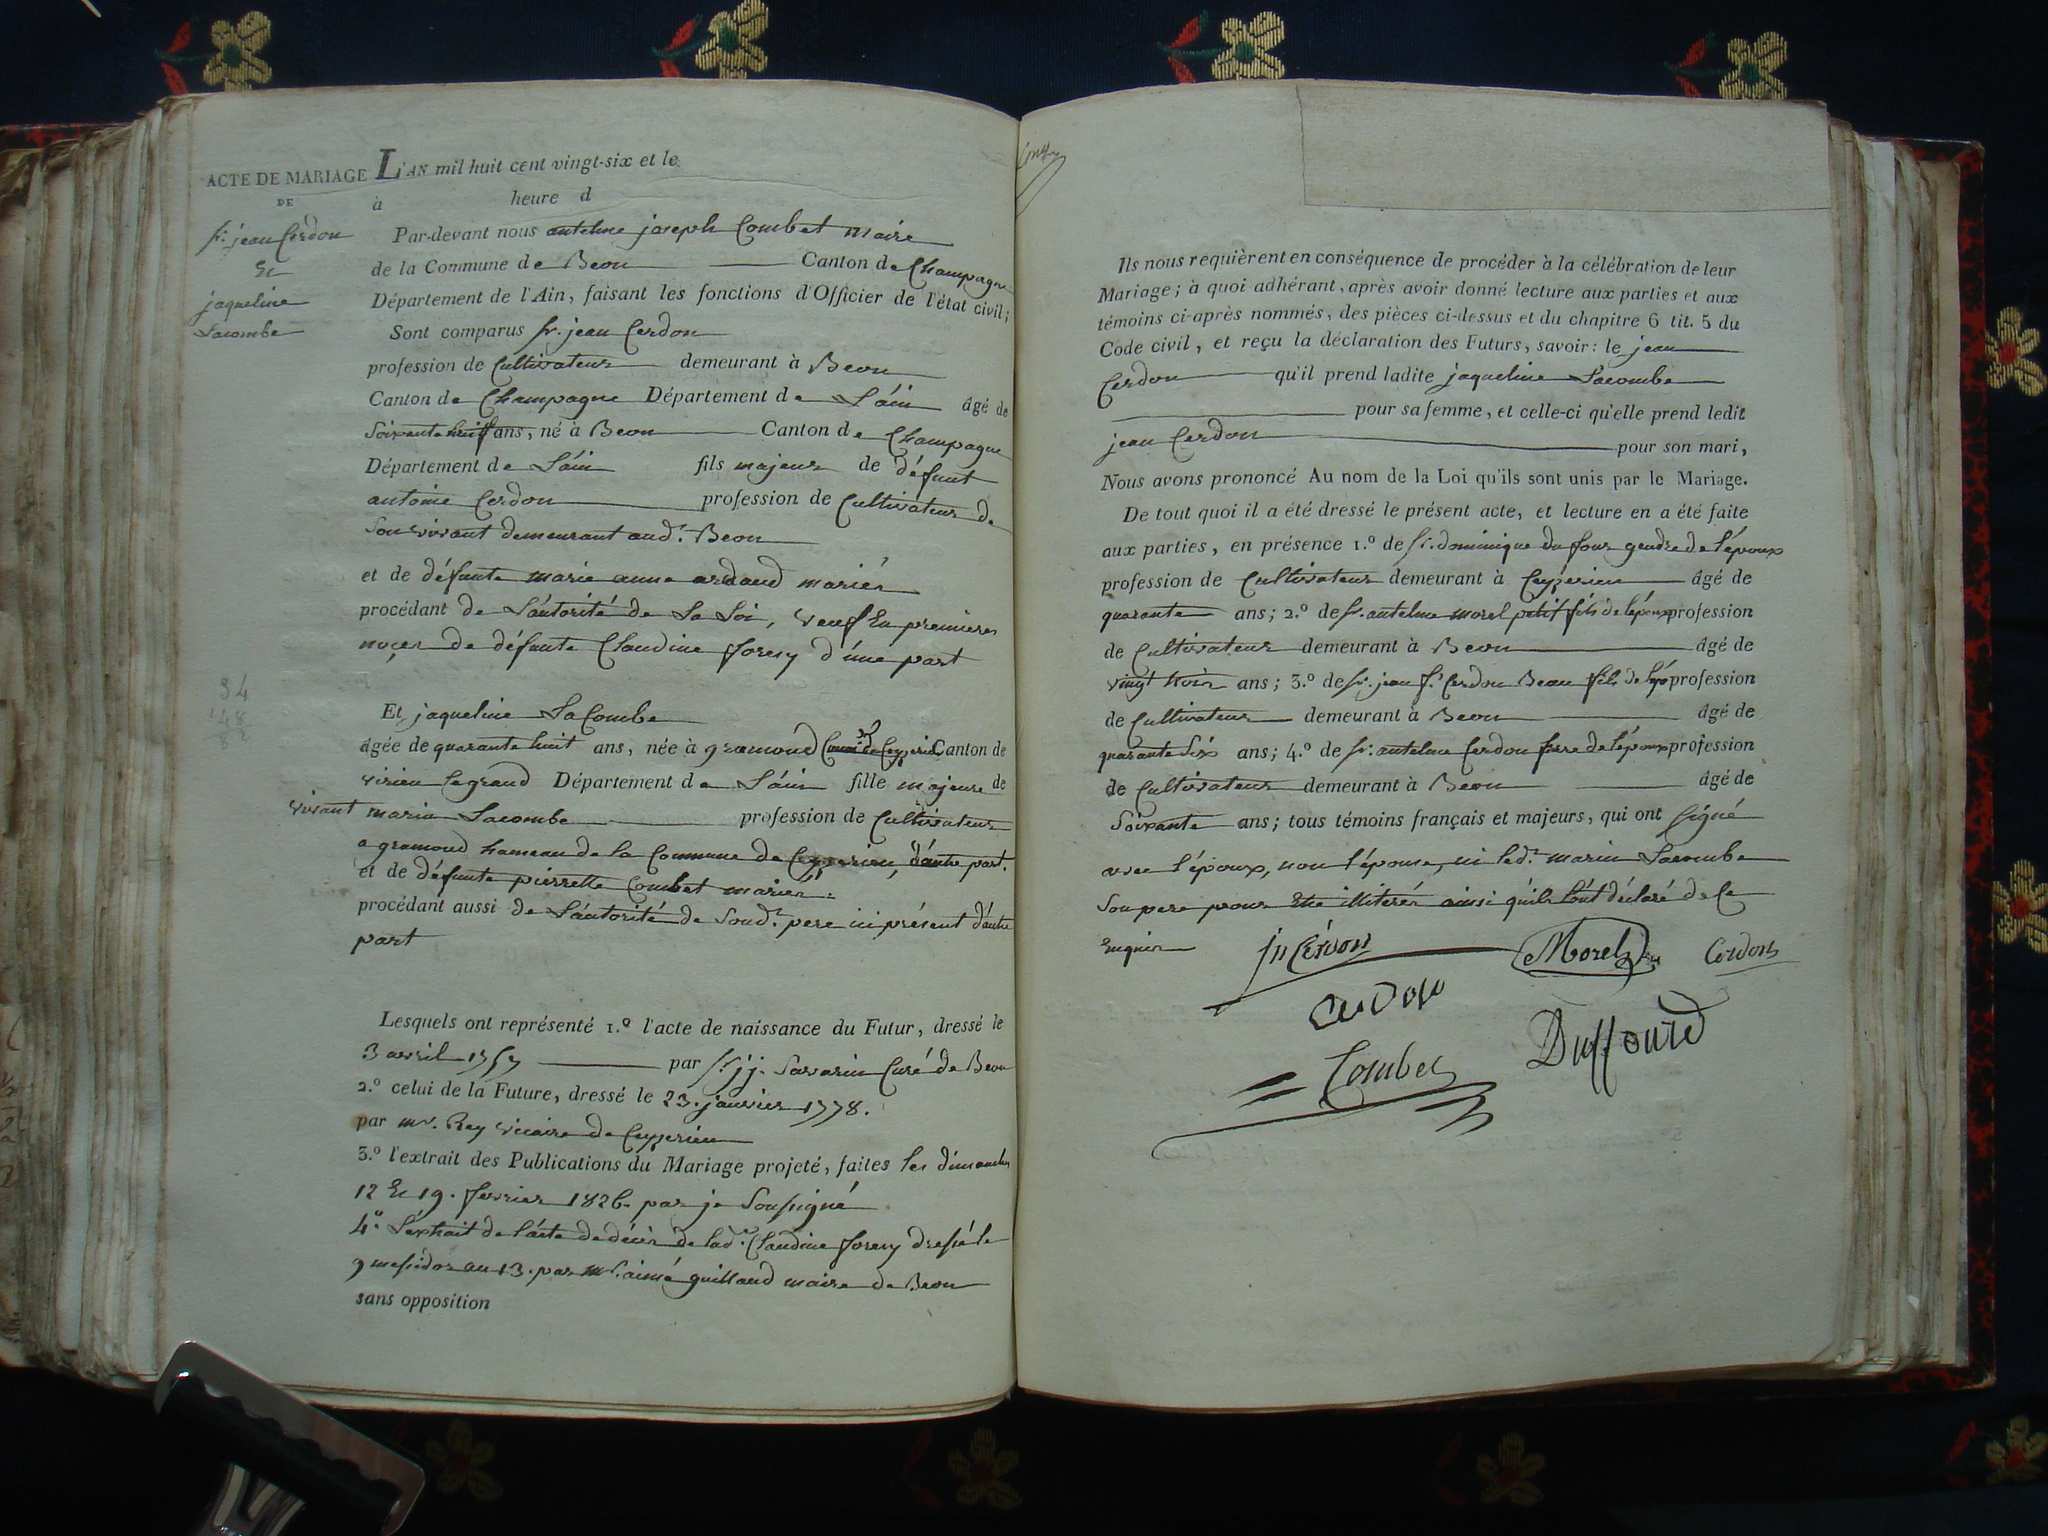 ACTE DE MARIAGE
DE
sr. jean Cerdon
Et
jaqueline
Lacombe
L'AN mil huit cent vingt-six et le
à heure d
Par-devant nous antelme joseph Combet maire
de la Commune de Beon Canton de Champagne
Département de l'Ain, faisant les fonctions d'Officier de l'état civil;
Sont comparus sr. jean Cerdon
profession de Cultivateur demeurant à Beon
Canton de Champagne Département de L'ain âgé de
Soixante huit ans, né à Beon Canton de Champagne
Département de L'ain fils majeur de défunt
antoine Cerdon profession de Cultivateur de
Son vivant demeurant aud. Beon
et de défunte marie anne ardaud mariés
procédant de L'autorité de La Loi, veuf En premieres
noçes de défunte Claudine forey d'une part
34
148
82
Et jaqueline LaCombe
âgée de quarante huit ans, née à gramond Ceyzerieu Canton de
virieu legrand Département de L'ain fille majeure de
vivant marin Lacombe profession de Cultivateur
a gramond hameau de la Commune de Ceyzerieu, d'autre part.
et de défunte pierrette Combet mariés
procédant aussi de L'autorité de Sond. pere ici présent d'autre
part
Lesquels ont représenté 1.º l'acte de naissance du Futur, dressé le
3 avril 1757 par sr. jj. Savarin Curé de Beon
2.º celui de la Future, dressé le 23. janvier 1778.
par mr. Rey vicaire de Ceyzerieu
3.º l'extrait des Publications du Mariage projeté, faites les dimanches
12 Et 19. fevrier 1826. par je Soussigné
4.º L'extrait de l'acte de décès de lad. Claudine forey dressé le
9 messidor an 13. par mr. aimé guilland maire de Beon
sans opposition
Ils nous requièrent en conséquence de procéder à la célébration de leur
Mariage; à quoi adhérant, après avoir donné lecture aux parties et aux
témoins ci-après nommés, des pièces ci-dessus et du chapitre 6 tit. 5 du
Code civil, et reçu la déclaration des Futurs, savoir: le jean
Cerdon qu'il prend ladite jaqueline Lacombe
pour sa femme, et celle-ci qu'elle prend ledit
jean Cerdon pour son mari,
Nous avons prononcé Au nom de la Loi qu'ils sont unis par le Mariage.
De tout quoi il a été dressé le présent acte, et lecture en a été faite
aux parties, en présence 1.º de sr. dominique dufour gendre de l'époux
profession de Cultivateur demeurant à Ceyzerieu âgé de
quarante ans; 2.º de sr. antelme morel petit fils de l'époux profession
de Cultivateur demeurant à Beon âgé de
vingt trois ans; 3.º de sr. jean f. Cerdon Beau fils de l'épo profession
de Cultivateur demeurant à Beon âgé de
quarante Six ans; 4.º de sr. antelme Cerdon frere de l'époux profession
de Cultivateur demeurant à Beon âgé de
Soixante ans; tous témoins français et majeurs, qui ont Signé
avec l'époux, non l'épouse, ni led. marin Lacombe
Son pere pour Etre illiterés ainsi qu'ils l'ont déclaré de Ce
Enquis
jn Cerdon Morel Cerdon
Cerdon
Duffourd
Combet